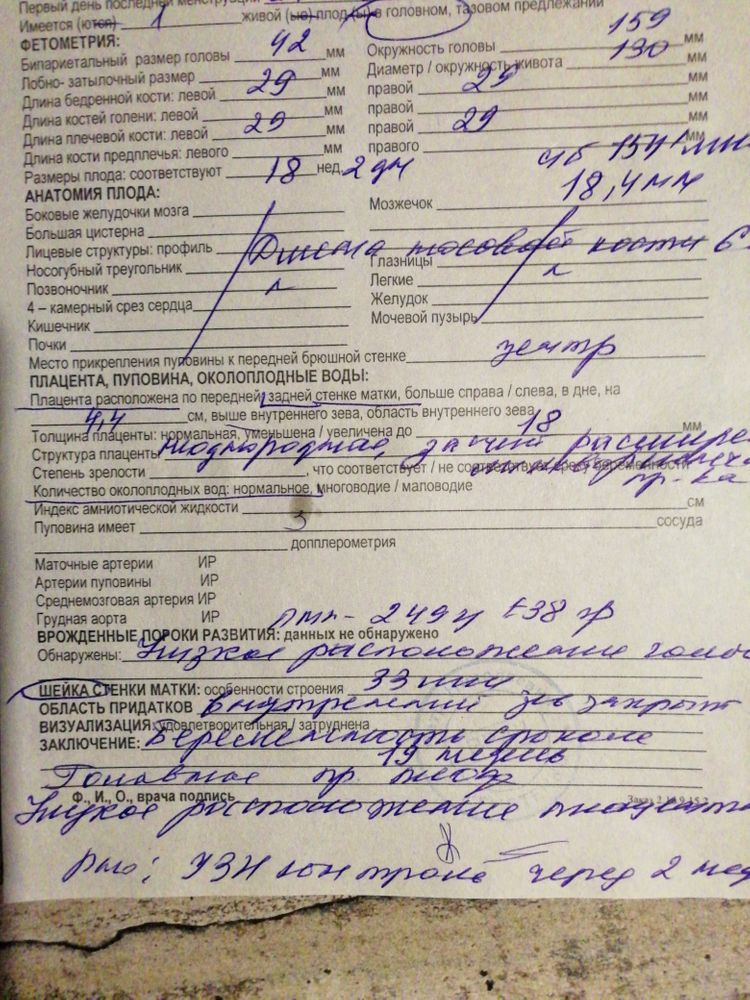 Первый день последней менструации
Имеется (ются) 1 живой (ые) плод (ы) в головном, тазовом предлежании
ФЕТОМЕТРИЯ:
Бипариетальный размер головы 42 мм Окружность головы 159 мм
Лобно- затылочный размер мм Диаметр / окружность живота 130 мм
Длина бедренной кости: левой 29 мм правой 29 мм
Длина костей голени: левой мм правой мм
Длина плечевой кости: левой 29 мм правой 29 мм
Длина кости предплечья: левого мм правого мм
Размеры плода: соответствуют 18 нед. 2 дн чсб 154 мин
АНАТОМИЯ ПЛОДА: 18,4 мм
Боковые желудочки мозга Мозжечок
Большая цистерна
Лицевые структуры: профиль Длина носовой кости 6
Носогубный треугольник Глазницы
Позвоночник Легкие
4 – камерный срез сердца Желудок
Кишечник Мочевой пузырь
Почки
Место прикрепления пуповины к передней брюшной стенке центр
ПЛАЦЕНТА, ПУПОВИНА, ОКОЛОПЛОДНЫЕ ВОДЫ:
Плацента расположена по передней, задней стенке матки, больше справа / слева, в дне, на
4,4 см, выше внутреннего зева, область внутреннего зева
Толщина плаценты: нормальная, уменьшена / увеличена до 18 мм
Структура плаценты однородная, за счет расшире
Степень зрелости , что соответствует / не соответствует сроку беременности пр-ка
Количество околоплодных вод: нормальное, многоводие / маловодие
Индекс амниотической жидкости см
Пуповина имеет 3 сосуда
допплерометрия
Маточные артерии ИР
Артерии пуповины ИР
Среднемозговая артерия ИР
Грудная аорта ИР пмп - 249 гр ±38 гр
ВРОЖДЕННЫЕ ПОРОКИ РАЗВИТИЯ: данных не обнаружено
Обнаружены: Низкое расположение
ШЕЙКА СТЕНКИ МАТКИ: особенности строения 33 мм
ОБЛАСТЬ ПРИДАТКОВ внутренний зев закрыт
ВИЗУАЛИЗАЦИЯ: удовлетворительная / затруднена
ЗАКЛЮЧЕНИЕ: Беременность сроком
19 недель
Головное пр. плода
Ф., И., О., врача подпись
Низкое расположение плаценты
Рто: УЗИ контроль через 2 нед